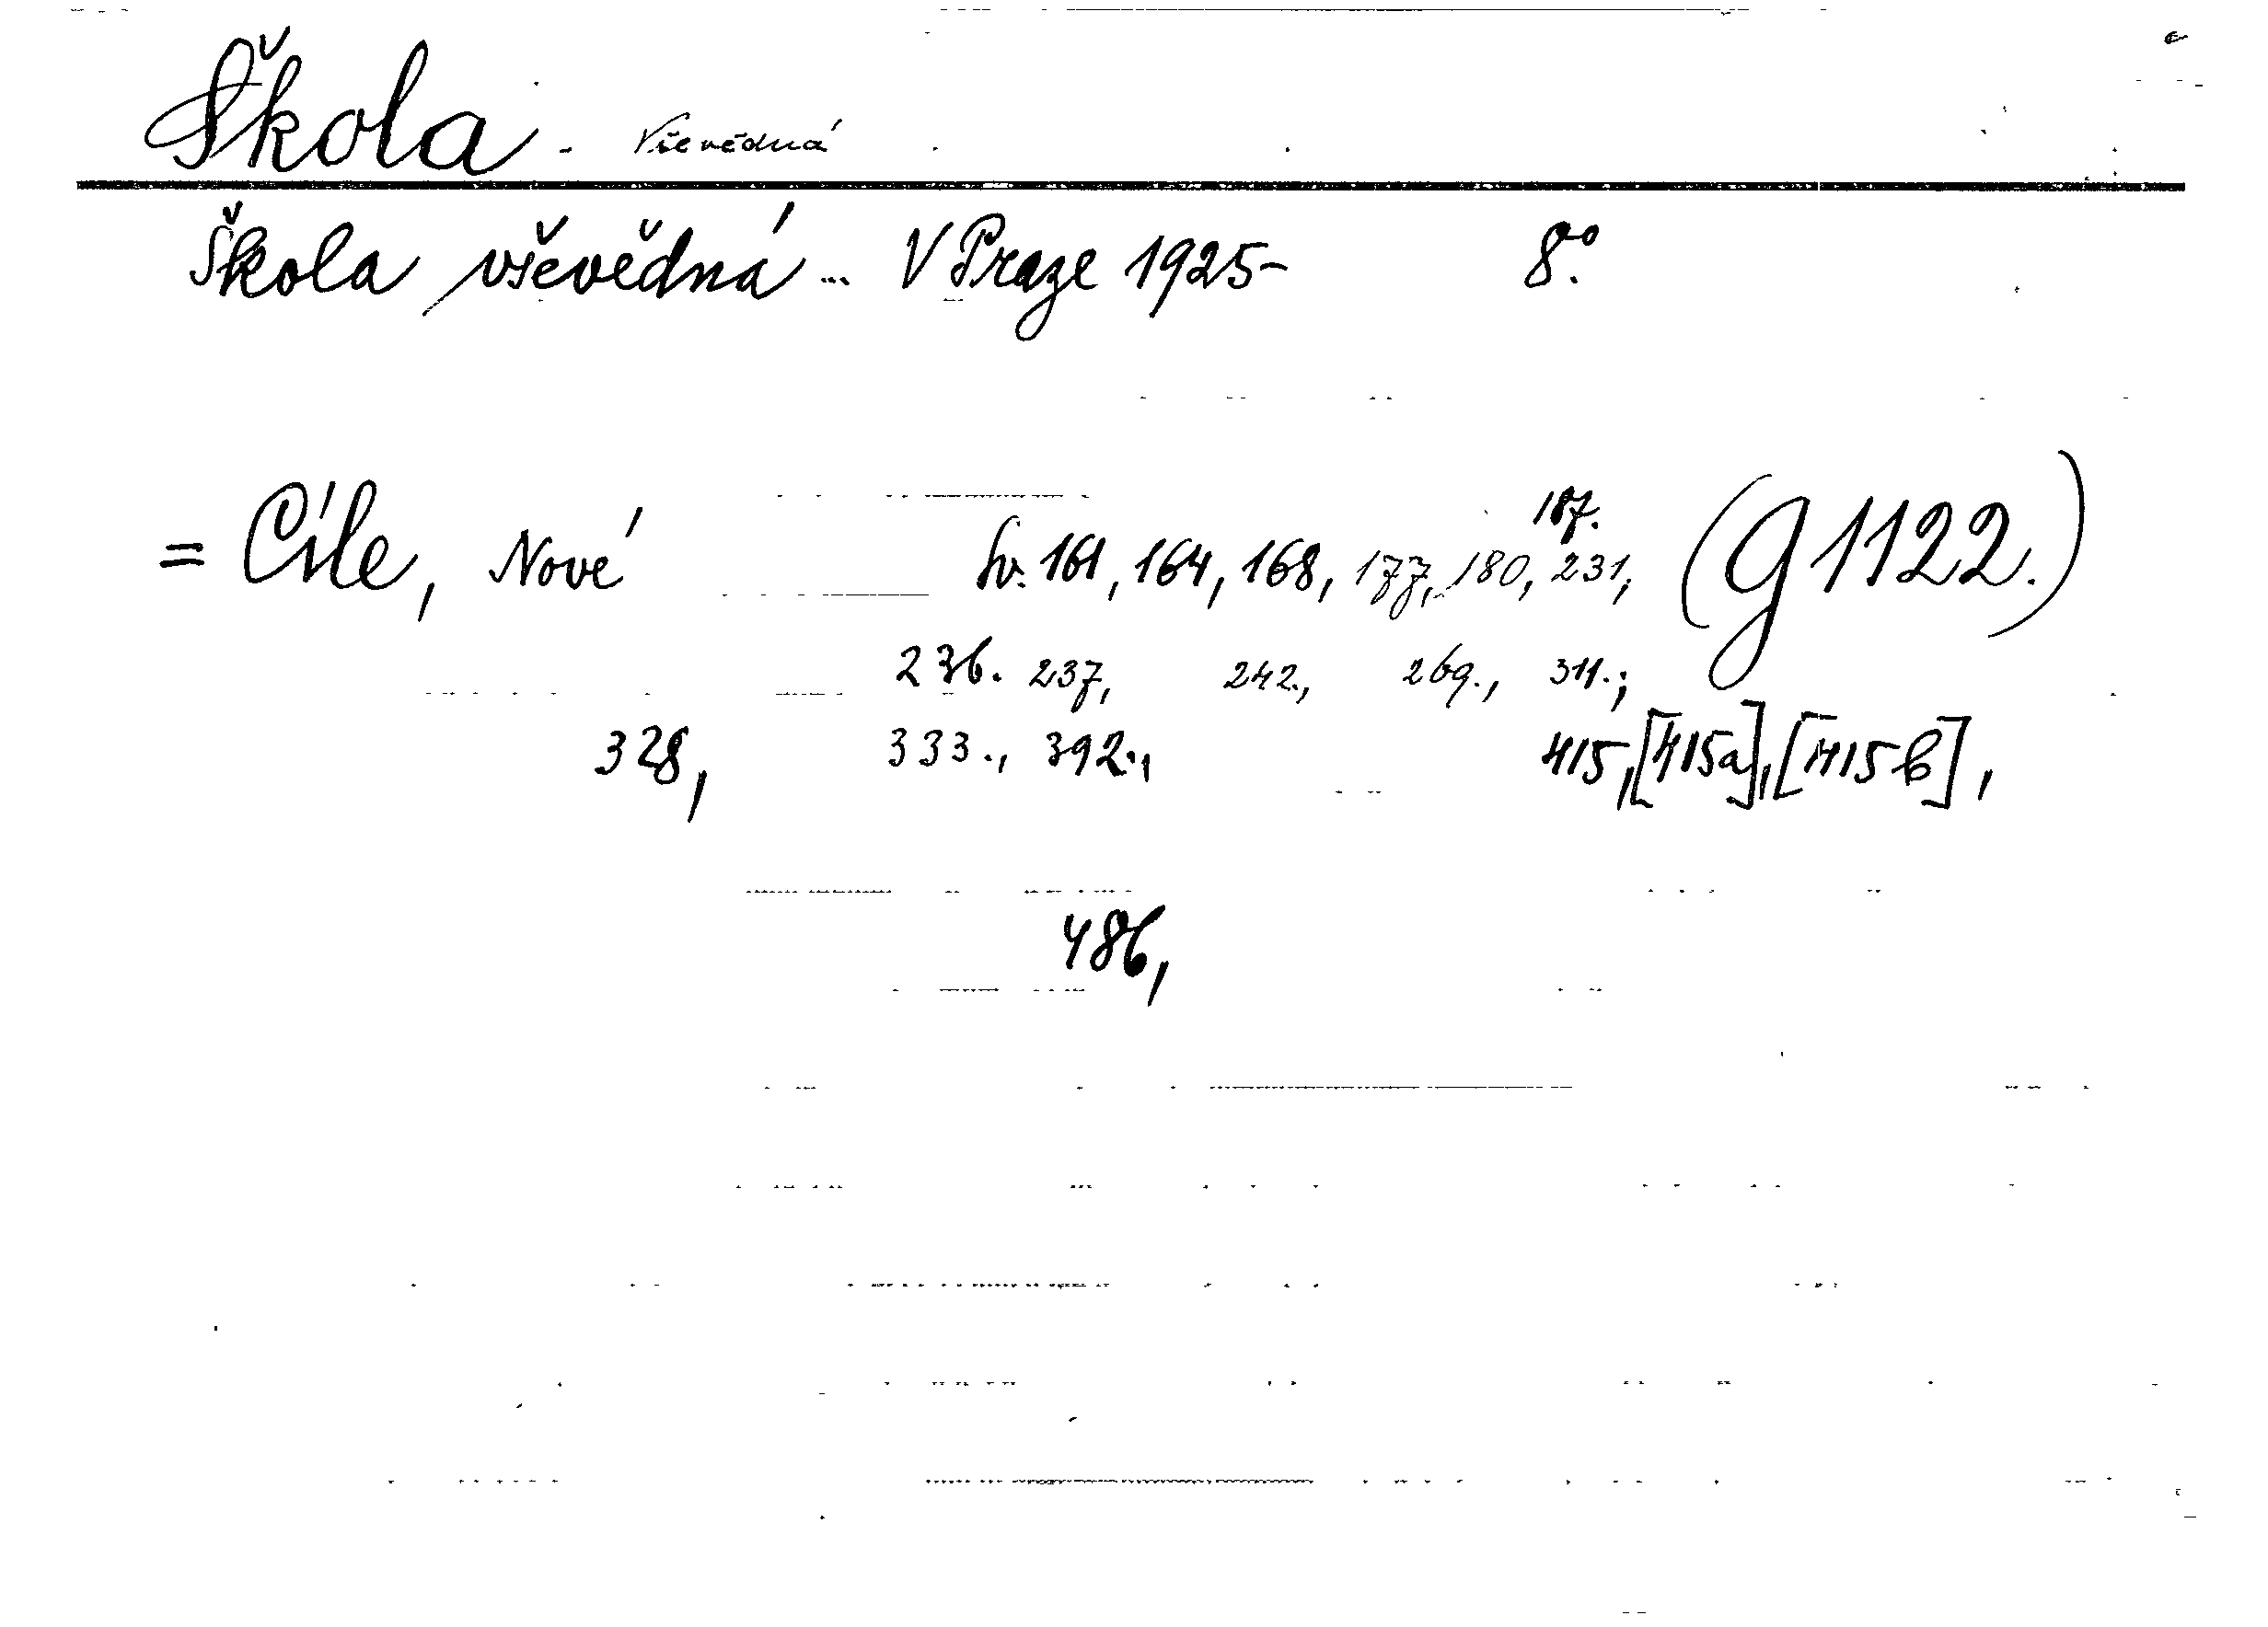 Škola - Vševědná
Škola vševědná ... V Praze 1925- 8°.
187.
= Cíle, Nové Sv. 161, 164, 168, 177, 180, 231, (G 1122.)
236. 237, 242., 269., 311.;
328, 333., 392., 415, [415a], [415b],
486,